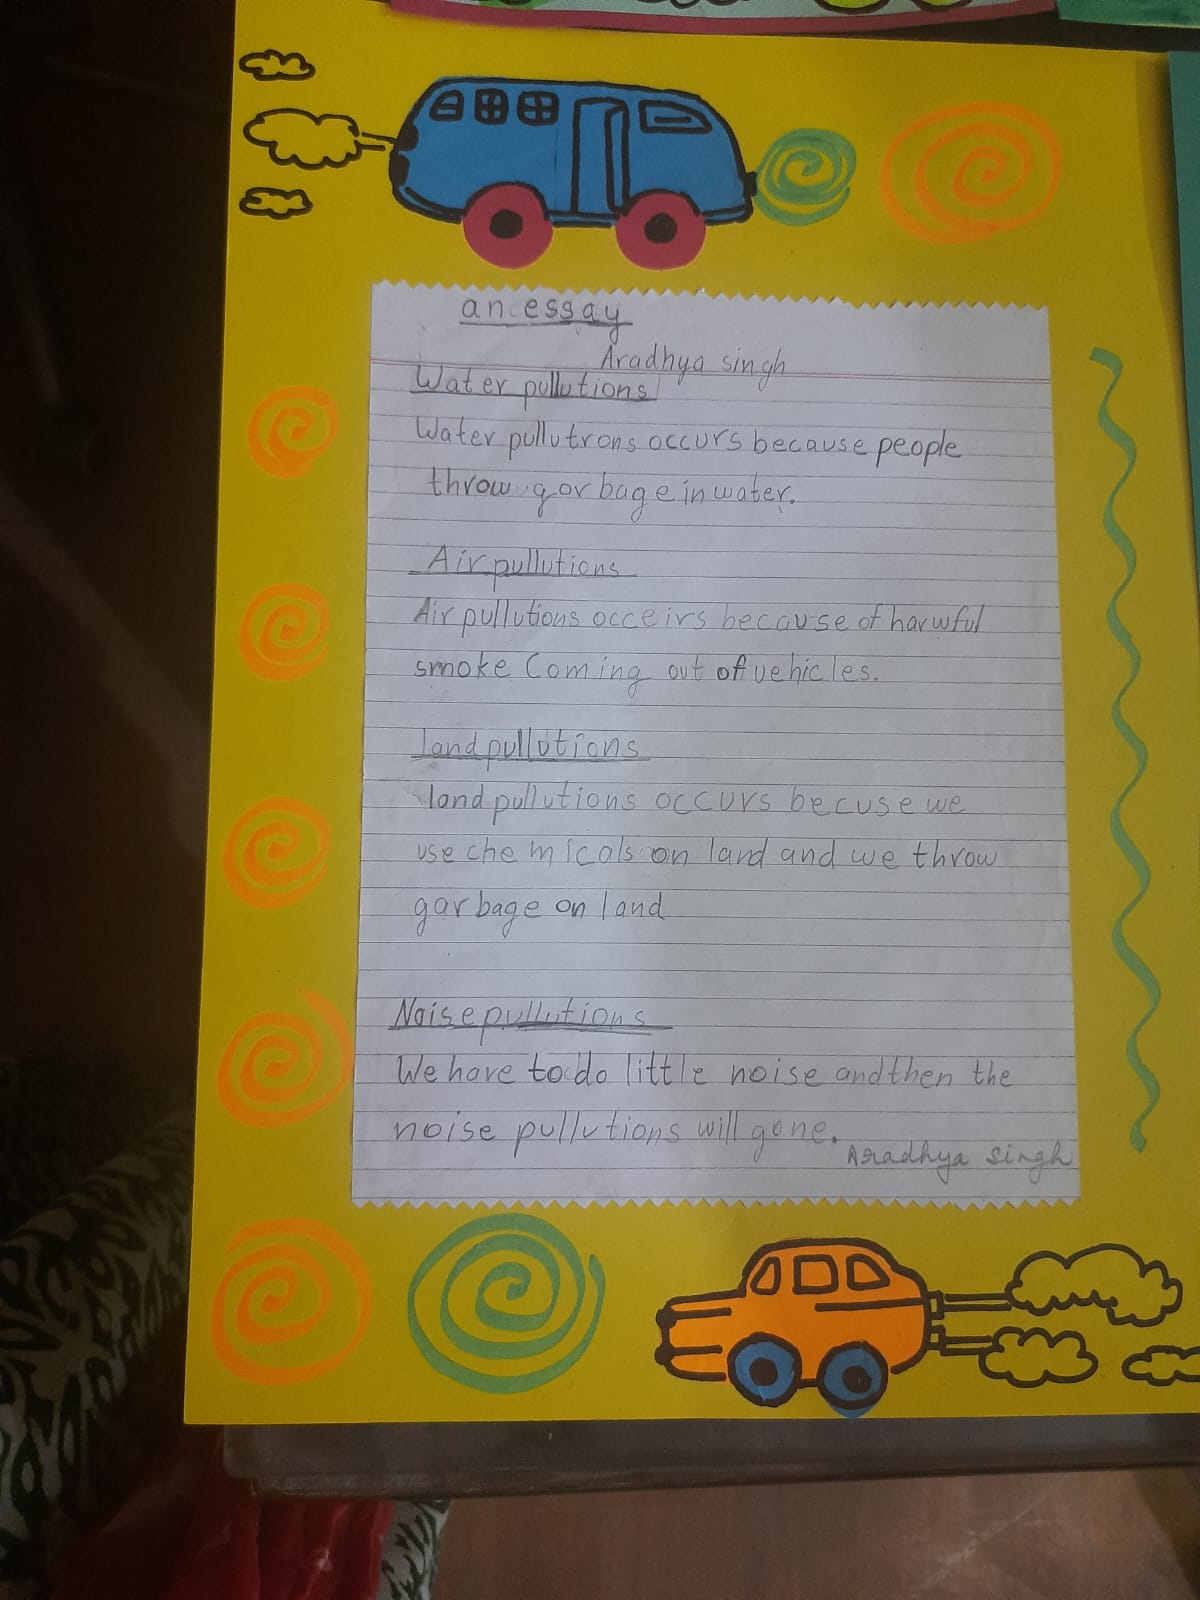 an essay
Aradhya singh
Water pullutions
Water pullutrons occurs because people
throw gorbage in water.
Air pullutions
Air pullutions occeirs because of harwful
smoke Coming out of vehicles.
land pullutions
land pullutions occurs becuse we
use chemicals on land and we throw
garbage on land
Noise pullutions
We have to do little noise and then the
noise pullutions will gone.
Aradhya Singh